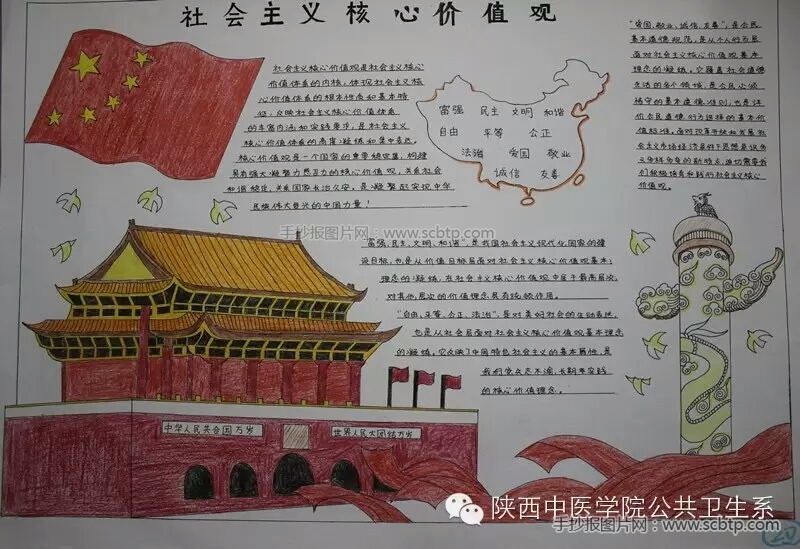 社会主义核心价值观
社会主义核心价值观是社会主义核心
价值体系的内核，体现社会主义核
心价值体系的根本性质和基本特
征，反映社会主义核心价值体系
的丰富内涵和实践要求，是社会主义
核心价值体系的高度凝练和集中表达。
核心价值观是一个国家的重要稳定器，构建
具有强大凝聚力感召力的核心价值观，关系社会
和谐稳定，关系国家长治久安，是凝聚起实现中华
民族伟大复兴的中国力量！
富强 民主 文明 和谐
自由 平等 公正
法治 爱国 敬业
诚信 友善
“爱国，敬业，诚信，友善”，是公民
基本道德规范，是从个人行为层
面对社会主义核心价值观基本
理念的凝练。它覆盖社会道德
生活的各个领域，是公民必须
恪守的基本道德准则，也是评
价公民道德行为选择的基本价
值标准。面对改革开放和发展社
会主义市场经济条件下思想意识多
元多样多变的新特点，迫切需要我
们积极培育和践行社会主义核心
价值观。
手抄报图片网：www.scbtp.com
“富强，民主，文明，和谐”，是我国社会主义现代化国家的建
设目标，也是从价值目标层面对社会主义核心价值观基本
理念的凝练，在社会主义核心价值观中居于最高层次，
对其他层次的价值理念具有统领作用。
“自由，平等，公正，法治”，是对美好社会的生动表述，
也是从社会层面对社会主义核心价值观基本理念
的凝练。它反映了中国特色社会主义的基本属性，是
我们党矢志不渝、长期来实践
的核心价值理念。
中华人民共合国万岁
世界人民大团结万岁
陕西中医学院公共卫生系
手抄报图片网：www.scbtp.com
20